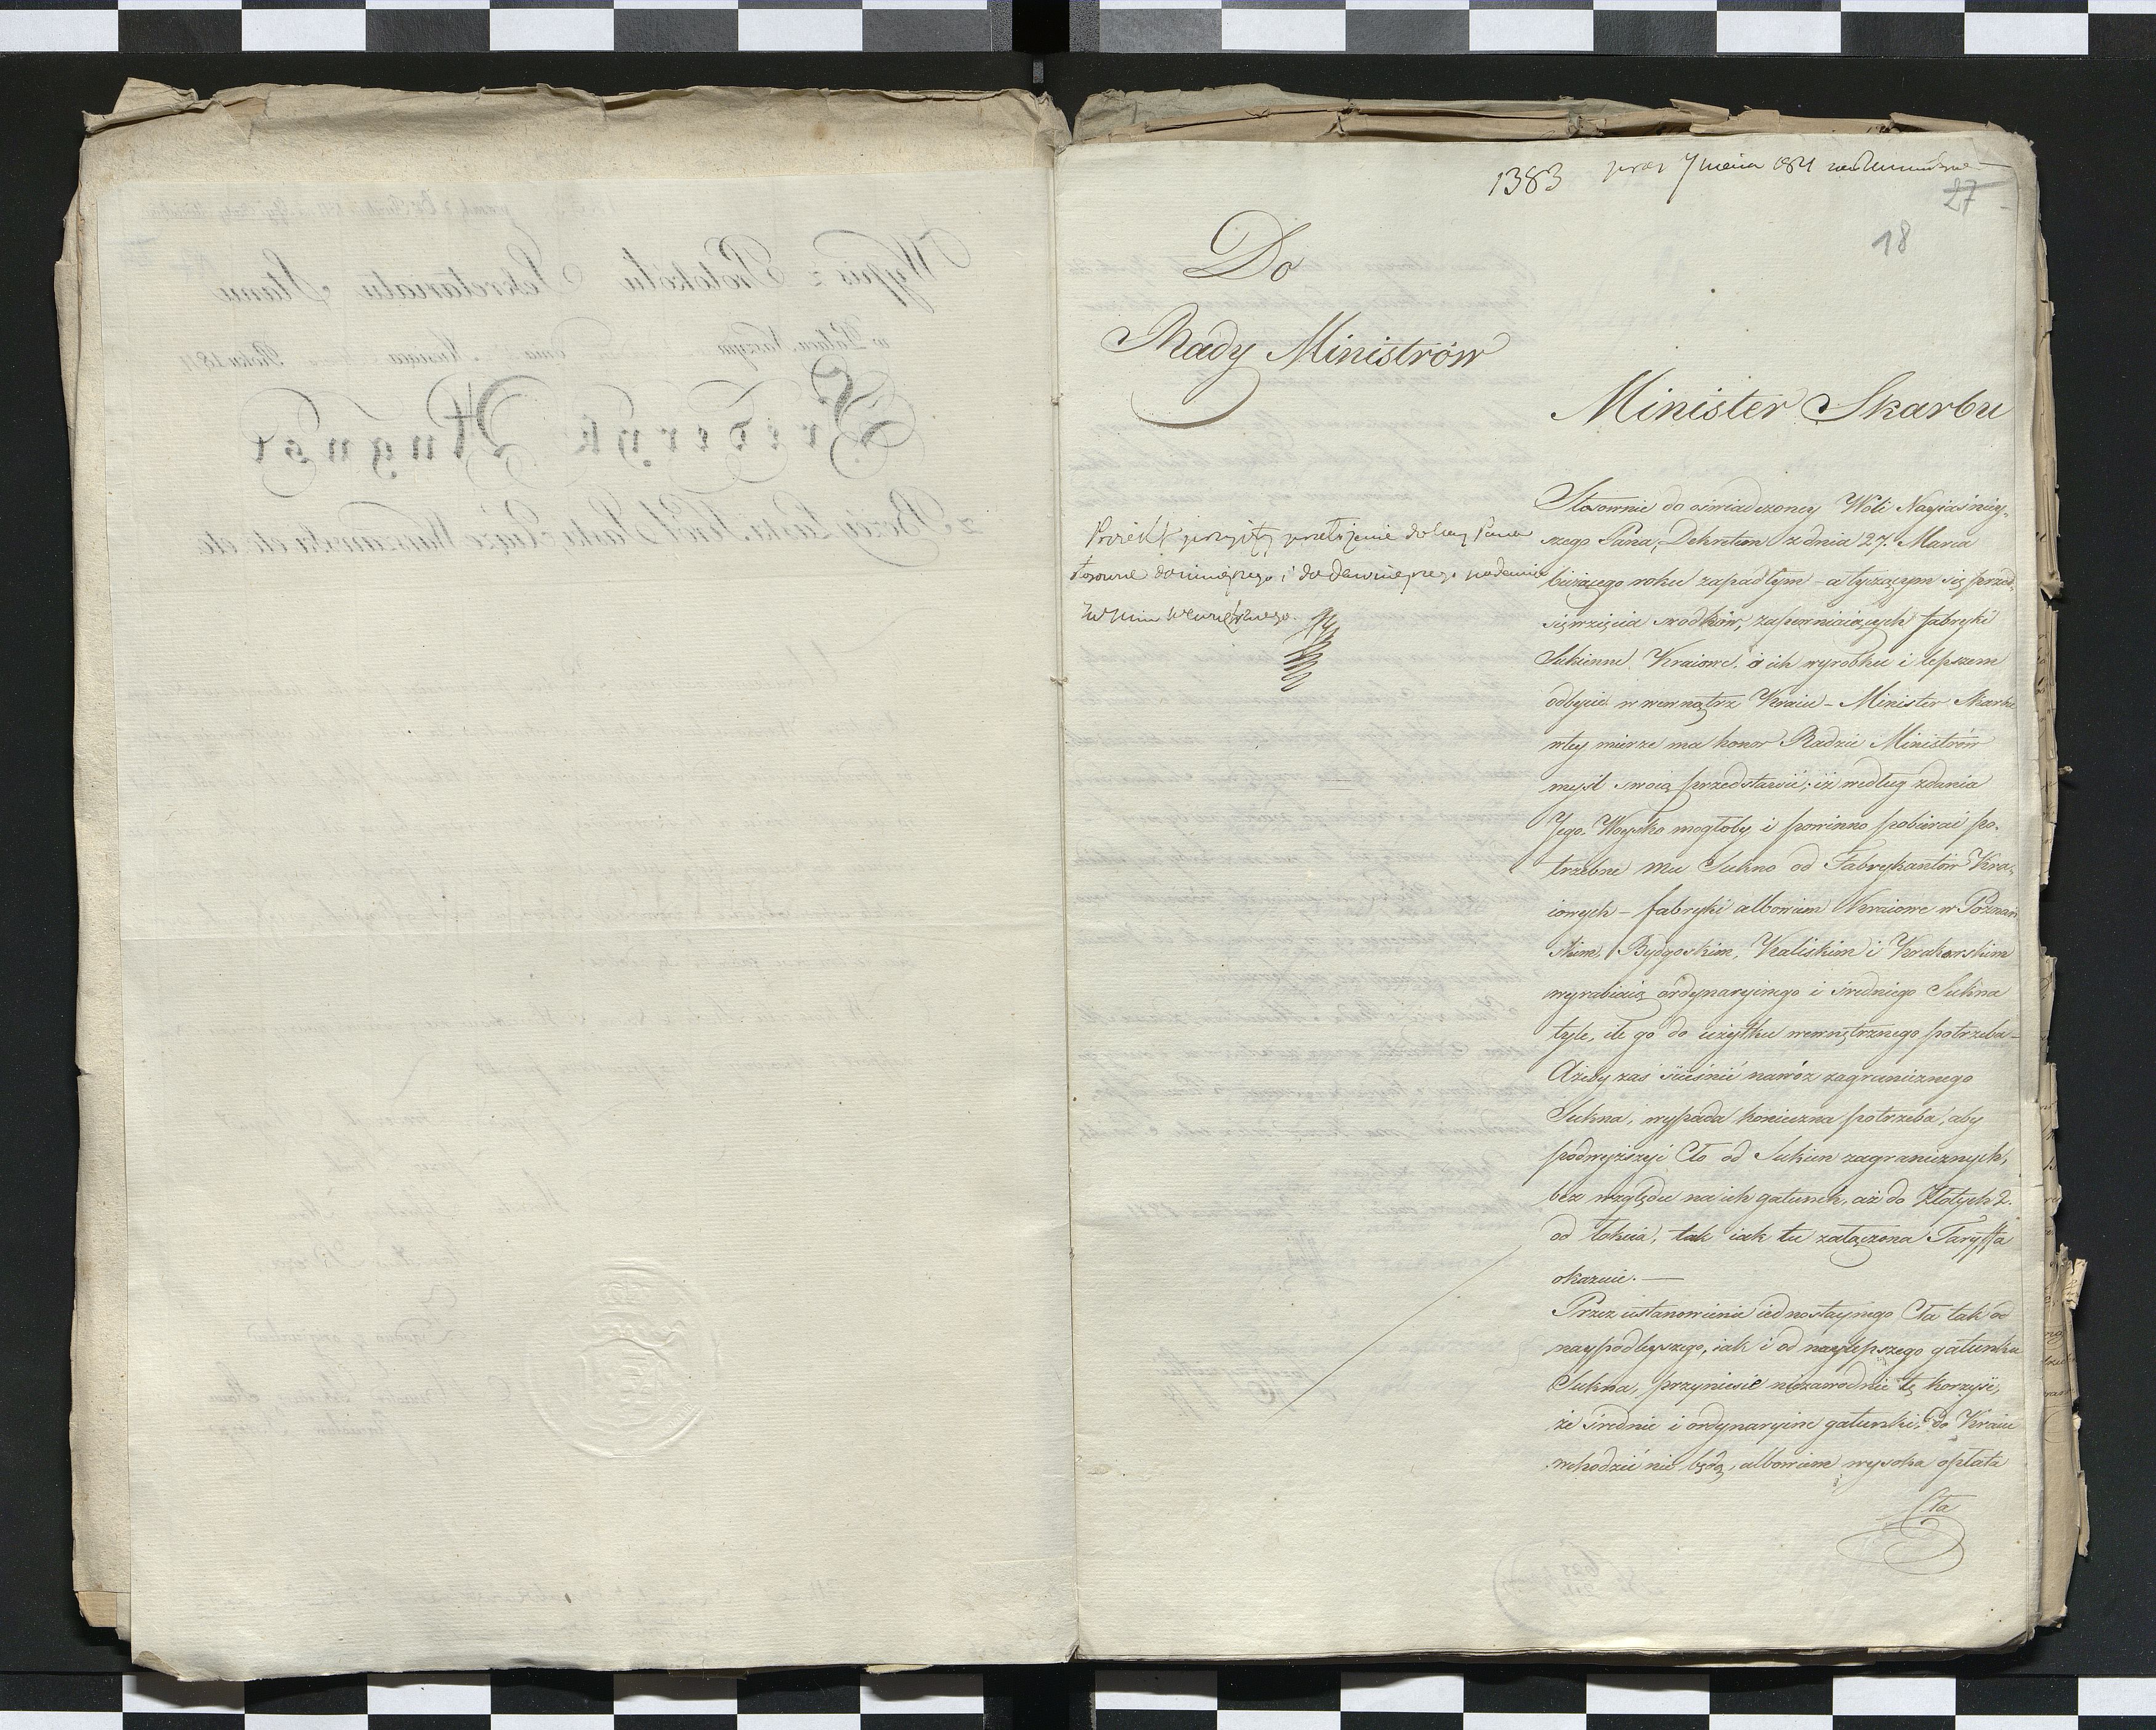 1383
27
18
Do
Rady Ministrów
Minister Skarbu
Stosownie do oświadczoney Woli Nayiaśniey-
szego Pana, Dekretem z dnia 27. Marca
bieżącego roku zapadłym - a tyczącym się przed-
sięwzięcia srodków, zapewniaiących fabryki
Sukienne Kraiowe o ich wyrobku i lepszem
odbyciu w wewnątrz Kraiu - Minister Skarbu
w tey mierze ma honor Radzie Ministrów
myśl swoią przedstawić; iż według zdania
Jego Woysko mogłoby i powinno pobierać po-
trzebne mu Sukno od Fabrykantów Kra-
iowych - fabryki albowiem Kraiowe w Poznań
skim, Bydgoskim, Kaliskim i Krakowskim
wyrabiaią ordynaryinego i średniego Sukna
tyle, ile go do użytku wewnętrznego potrzeba -
Ażeby zaś ścieśnić nawóz zagranicznego
Sukna, wypada konieczna potrzeba, aby
podwyższyć Cło od Sukien zagranicznych,
bez względu na ich gatunek, aż do Złotych 2.
od łokcia, tak iak tu załączona Taryffa
okazuie. -
Przez ustanowienie iednostaynego Cła tak od
naypodleyszego, iak i od naylepszego gatunku
Sukna, przyniesie niezawodnie tę korzyść,
że średnie i ordynaryine gatunki, do Kraiu
wchodzić nie będą, albowiem wysoka opłata
Cła
Proiekt przyięty przełożenie do Nay Pana
stosowne do ninieyszego i do dawnieyszego podania
W Min Wewnętrznego.